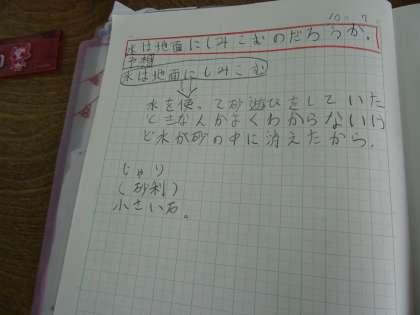 10.7
水は地面にしみこむのだろうか。
予想
水は地面にしみこむ
水を使って砂遊びをしていた
ときなんかよくわからないけ
ど水が砂の中に消えたから。
じゃり
(砂利)
小さい石。